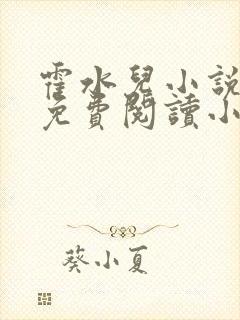 霍水兒小說
免費閱讀小
葵小夏